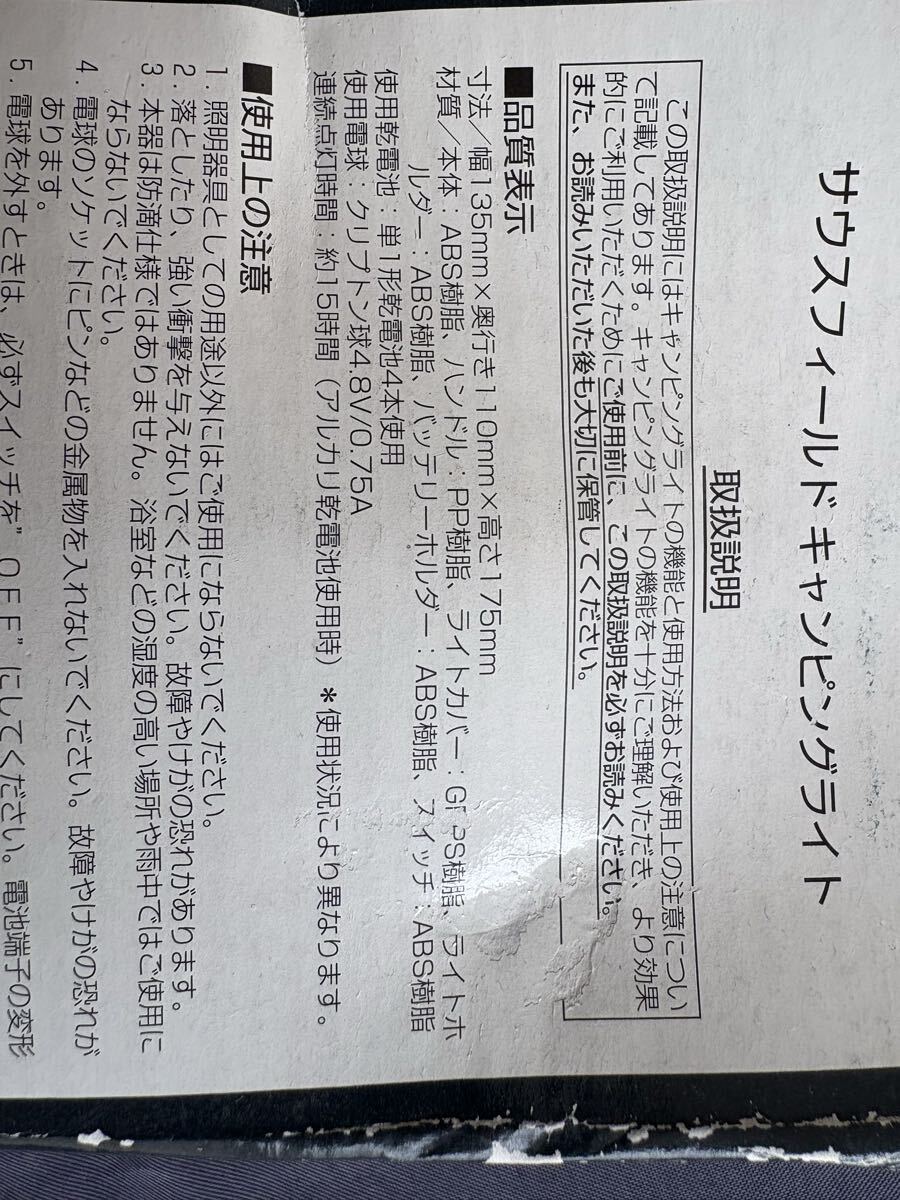 サウスフィールドキャンピングライト
取扱説明
この取扱説明にはキャンピングライトの機能と使用方法および使用上の注意につい
て記載してあります。キャンピングライトの機能を十分にご理解いただき、より効果
的にご利用いただくためにご使用前に、この取扱説明を必ずお読みください。
また、お読みいただいた後も大切に保管してください。
■品質表示
寸法／幅135mm×奥行き110mm×高さ175mm
材質／本体：ABS樹脂、ハンドル：PP樹脂、ライトカバー：GPPS樹脂、ライトホ
ルダー：ABS樹脂、バッテリーホルダー：ABS樹脂、スイッチ：ABS樹脂
使用乾電池：単1形乾電池4本使用
使用電球：クリプトン球4.8V/0.75A
連続点灯時間：約15時間（アルカリ乾電池使用時）＊使用状況により異なります。
■使用上の注意
1．照明器具としての用途以外にはご使用にならないでください。
2．落としたり、強い衝撃を与えないでください。故障やけがの恐れがあります。
3．本器は防滴仕様ではありません。浴室などの湿度の高い場所や雨中ではご使用に
ならないでください。
4．電球のソケットにピンなどの金属物を入れないでください。故障やけがの恐れが
あります。
5．電球を外すときは、必ずスイッチを”OFF”にしてください。電池端子の変形